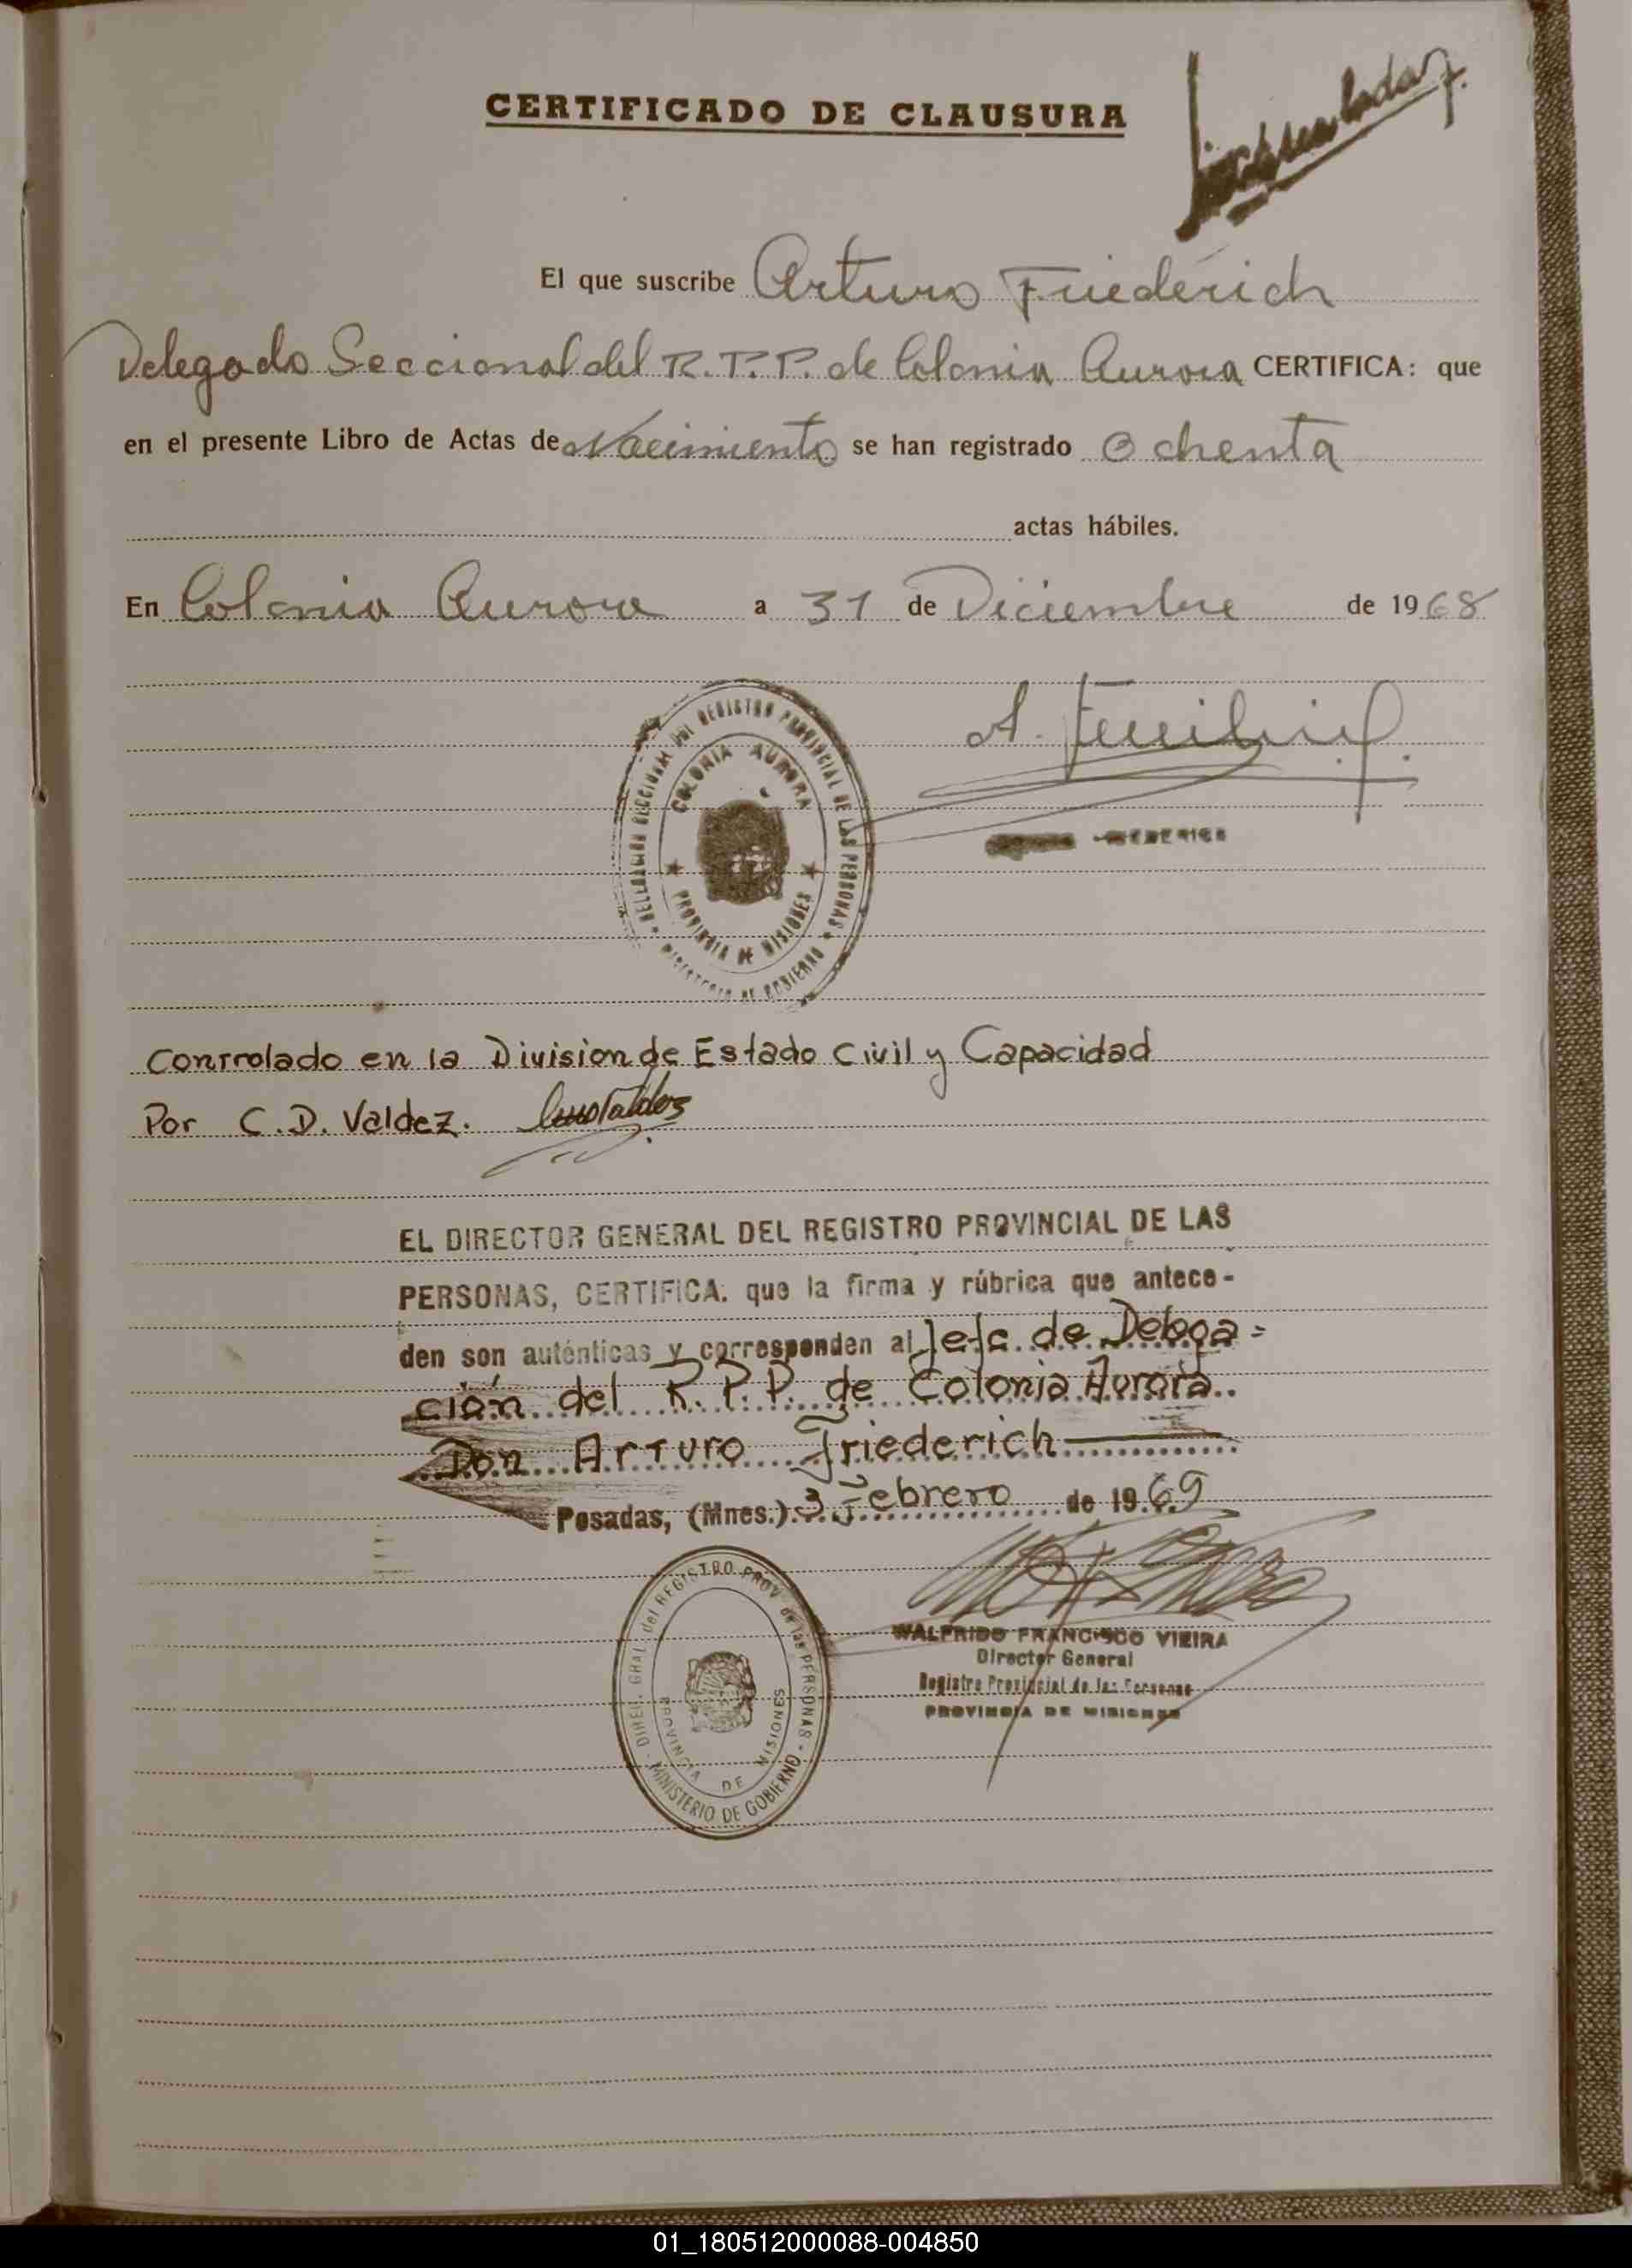 CERTIFICADO DE CLAUSURA
El que suscribe Arturo Friederich
Delegado Seccional del R.P.P. de Colonia Aurora CERTIFICA: que
en el presente Libro de Actas de Nacimiento se han registrado Ochenta
actas hábiles.
En Colonia Aurora a 31 de Diciembre de 1968
DELEGACION SECCIONAL DEL REGISTRO PROVINCIAL DE LAS PERSONAS
COLONIA AURORA
PROVINCIA DE MISIONES
MINISTERIO DE GOBIERNO
Controlado en la Division de Estado Civil y Capacidad
Por C.D. Valdez.
EL DIRECTOR GENERAL DEL REGISTRO PROVINCIAL DE LAS
PERSONAS, CERTIFICA: que la firma y rúbrica que antece-
den son auténticas y corresponden al Jefe de Delega=
ción del R.P.P. de Colonia Aurora
Don Arturo Friederich
Posadas, (Mnes.) 3 Febrero de 1969
DIREC. GRAL. del REGISTRO PROV. de las PERSONAS
PROVINCIA DE MISIONES
MINISTERIO DE GOBIERNO
WALFRIDO FRANCISCO VIEIRA
Director General
Registro Provincial de las Personas
PROVINCIA DE MISIONES
01_180512000088-004850